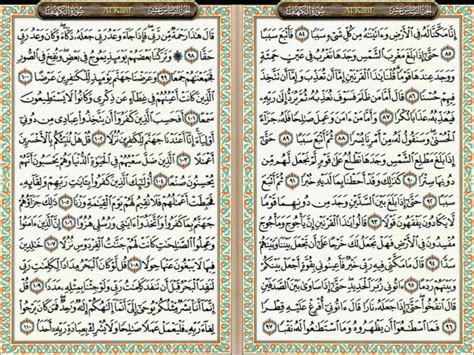 الجزء السادس عشر
Al Kahf
سورة الكهف
إِنَّا مَكَّنَّا لَهُۥ فِى ٱلْأَرْضِ وَءَاتَيْنَٰهُ مِن كُلِّ شَىْءٍ سَبَبًا ٨٤ فَأَتْبَعَ سَبَبًا
٨٥ حَتَّىٰٓ إِذَا بَلَغَ مَغْرِبَ ٱلشَّمْسِ وَجَدَهَا تَغْرُبُ فِى عَيْنٍ حَمِئَةٍ
وَوَجَدَ عِندَهَا قَوْمًا قُلْنَا يَٰذَا ٱلْقَرْنَيْنِ إِمَّآ أَن تُعَذِّبَ وَإِمَّآ أَن تَتَّخِذَ
فِيهِمْ حُسْنًا ٨٦ قَالَ أَمَّا مَن ظَلَمَ فَسَوْفَ نُعَذِّبُهُۥ ثُمَّ يُرَدُّ إِلَىٰ رَبِّهِۦ
فَيُعَذِّبُهُۥ عَذَابًا نُّكْرًا ٨٧ وَأَمَّا مَنْ ءَامَنَ وَعَمِلَ صَٰلِحًا فَلَهُۥ جَزَآءً
ٱلْحُسْنَىٰ وَسَنَقُولُ لَهُۥ مِنْ أَمْرِنَا يُسْرًا ٨٨ ثُمَّ أَتْبَعَ سَبَبًا ٨٩ حَتَّىٰٓ
إِذَا بَلَغَ مَطْلِعَ ٱلشَّمْسِ وَجَدَهَا تَطْلُعُ عَلَىٰ قَوْمٍ لَّمْ نَجْعَل لَّهُم مِّن
دُونِهَا سِتْرًا ٩٠ كَذَٰلِكَ وَقَدْ أَحَطْنَا بِمَا لَدَيْهِ خُبْرًا ٩١ ثُمَّ أَتْبَعَ سَبَبًا
٩٢ حَتَّىٰٓ إِذَا بَلَغَ بَيْنَ ٱلسَّدَّيْنِ وَجَدَ مِن دُونِهِمَا قَوْمًا
لَّا يَكَادُونَ يَفْقَهُونَ قَوْلًا ٩٣ قَالُوا۟ يَٰذَا ٱلْقَرْنَيْنِ إِنَّ يَأْجُوجَ وَمَأْجُوجَ
مُفْسِدُونَ فِى ٱلْأَرْضِ فَهَلْ نَجْعَلُ لَكَ خَرْجًا عَلَىٰٓ أَن تَجْعَلَ بَيْنَنَا وَبَيْنَهُمْ
سَدًّا ٩٤ قَالَ مَا مَكَّنِّى فِيهِ رَبِّى خَيْرٌ فَأَعِينُونِى بِقُوَّةٍ أَجْعَلْ بَيْنَكُمْ
وَبَيْنَهُمْ رَدْمًا ٩٥ ءَاتُونِى زُبَرَ ٱلْحَدِيدِ حَتَّىٰٓ إِذَا سَاوَىٰ بَيْنَ ٱلصَّدَفَيْنِ
قَالَ ٱنفُخُوا۟ حَتَّىٰٓ إِذَا جَعَلَهُۥ نَارًا قَالَ ءَاتُونِىٓ أُفْرِغْ عَلَيْهِ قِطْرًا
٩٦ فَمَا ٱسْطَٰعُوٓا۟ أَن يَظْهَرُوهُ وَمَا ٱسْتَطَٰعُوا۟ لَهُۥ نَقْبًا ٩٧
الجزء السادس عشر
Al Kahf
سورة الكهف
قَالَ هَٰذَا رَحْمَةٌ مِّن رَّبِّى فَإِذَا جَآءَ وَعْدُ رَبِّى جَعَلَهُۥ دَكَّآءَ وَكَانَ وَعْدُ رَبِّى
حَقًّا ٩٨ وَتَرَكْنَا بَعْضَهُمْ يَوْمَئِذٍ يَمُوجُ فِى بَعْضٍ وَنُفِخَ فِى ٱلصُّورِ
فَجَمَعْنَٰهُمْ جَمْعًا ٩٩ وَعَرَضْنَا جَهَنَّمَ يَوْمَئِذٍ لِّلْكَٰفِرِينَ عَرْضًا ١٠٠
ٱلَّذِينَ كَانَتْ أَعْيُنُهُمْ فِى غِطَآءٍ عَن ذِكْرِى وَكَانُوا۟ لَا يَسْتَطِيعُونَ
سَمْعًا ١٠١ أَفَحَسِبَ ٱلَّذِينَ كَفَرُوٓا۟ أَن يَتَّخِذُوا۟ عِبَادِى مِن دُونِىٓ
أَوْلِيَآءَ إِنَّآ أَعْتَدْنَا جَهَنَّمَ لِلْكَٰفِرِينَ نُزُلًا ١٠٢ قُلْ هَلْ نُنَبِّئُكُم بِٱلْأَخْسَرِينَ
أَعْمَٰلًا ١٠٣ ٱلَّذِينَ ضَلَّ سَعْيُهُمْ فِى ٱلْحَيَوٰةِ ٱلدُّنْيَا وَهُمْ يَحْسَبُونَ أَنَّهُمْ
يُحْسِنُونَ صُنْعًا ١٠٤ أُو۟لَٰٓئِكَ ٱلَّذِينَ كَفَرُوا۟ بِـَٔايَٰتِ رَبِّهِمْ وَلِقَآئِهِۦ
فَحَبِطَتْ أَعْمَٰلُهُمْ فَلَا نُقِيمُ لَهُمْ يَوْمَ ٱلْقِيَٰمَةِ وَزْنًا ١٠٥ ذَٰلِكَ جَزَآؤُهُمْ
جَهَنَّمُ بِمَا كَفَرُوا۟ وَٱتَّخَذُوٓا۟ ءَايَٰتِى وَرُسُلِى هُزُوًا ١٠٦ إِنَّ ٱلَّذِينَ ءَامَنُوا۟
وَعَمِلُوا۟ ٱلصَّٰلِحَٰتِ كَانَتْ لَهُمْ جَنَّٰتُ ٱلْفِرْدَوْسِ نُزُلًا ١٠٧ خَٰلِدِينَ
فِيهَا لَا يَبْغُونَ عَنْهَا حِوَلًا ١٠٨ قُل لَّوْ كَانَ ٱلْبَحْرُ مِدَادًا لِّكَلِمَٰتِ رَبِّى
لَنَفِدَ ٱلْبَحْرُ قَبْلَ أَن تَنفَدَ كَلِمَٰتُ رَبِّى وَلَوْ جِئْنَا بِمِثْلِهِۦ مَدَدًا ١٠٩ قُلْ
إِنَّمَآ أَنَا۠ بَشَرٌ مِّثْلُكُمْ يُوحَىٰٓ إِلَىَّ أَنَّمَآ إِلَٰهُكُمْ إِلَٰهٌ وَٰحِدٌ فَمَن كَانَ يَرْجُوا۟
لِقَآءَ رَبِّهِۦ فَلْيَعْمَلْ عَمَلًا صَٰلِحًا وَلَا يُشْرِكْ بِعِبَادَةِ رَبِّهِۦٓ أَحَدًۢا ١١٠